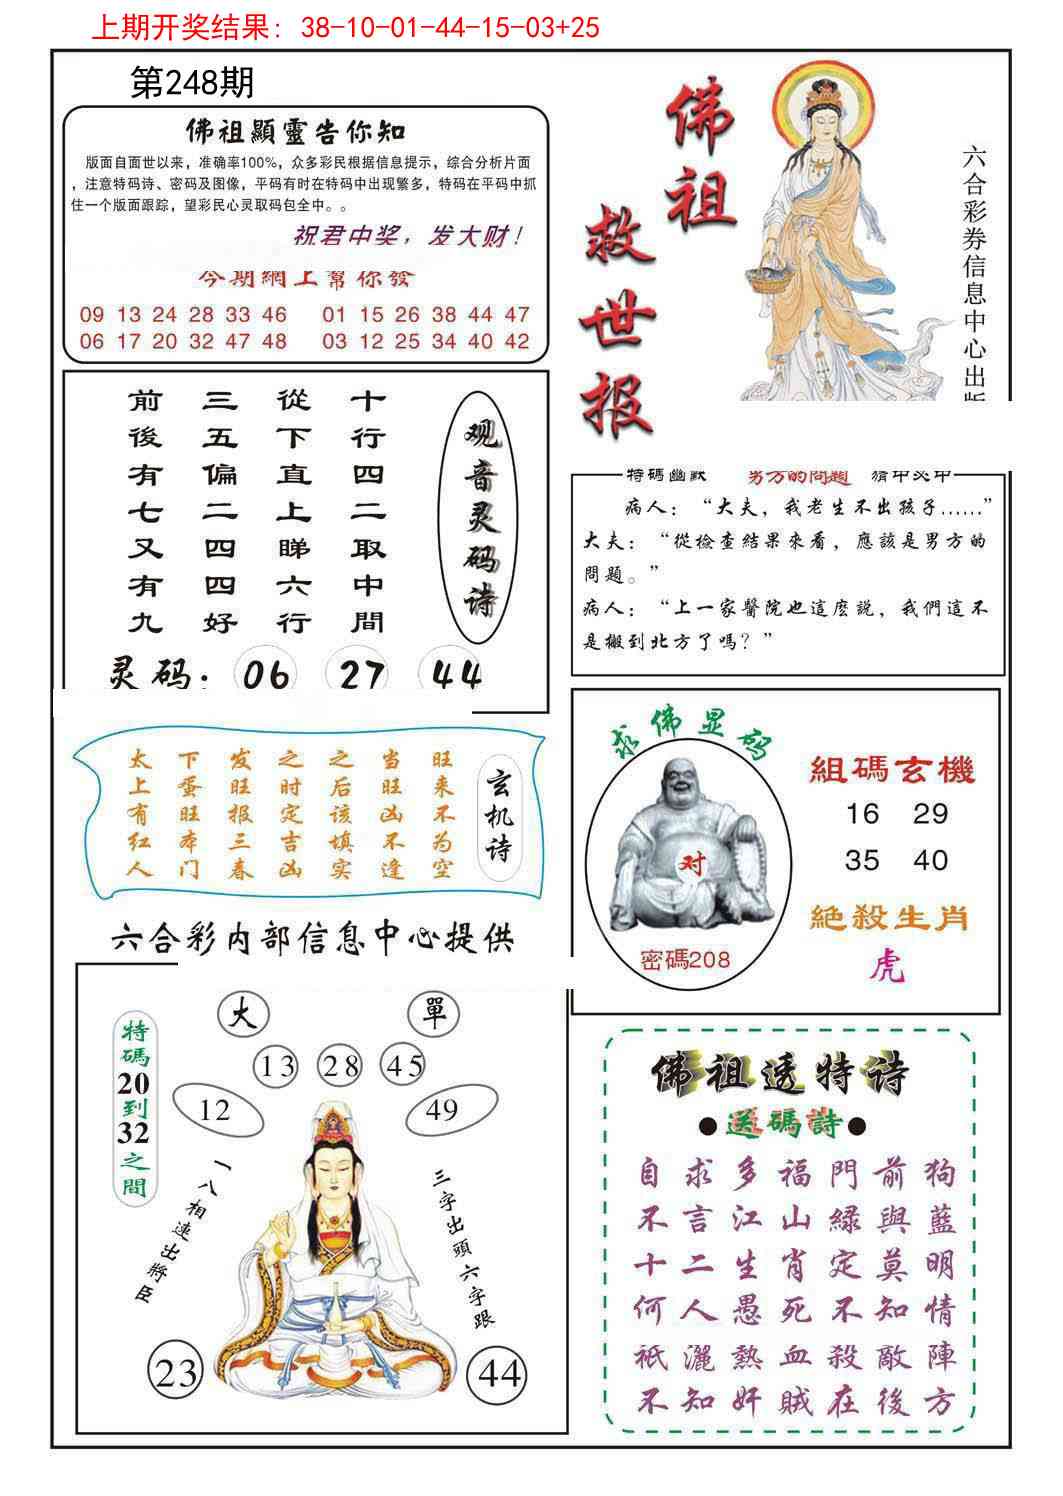 上期开奖结果：38-10-01-44-15-03+25
第248期
佛祖顯靈告你知
版面自面世以来，准确率100%，众多彩民根据信息提示，综合分析片面
，注意特码诗、密码及图像，平码有时在特码中出现繁多，特码在平码中抓
住一个版面跟踪，望彩民心灵取码包全中。。
祝君中奖，发大财！
今期網上幫你發
09 13 24 28 33 46 01 15 26 38 44 47
06 17 20 32 47 48 03 12 25 34 40 42
佛祖
救世报
六合彩券信息中心出版
十行四二取中間
從下直上睇六行
三五偏二四四好
前後有七又有九
观音灵码诗
灵码：06 27 44
特碼幽默 男方的問題 猜中必中
病人：“大夫，我老生不出孩子......”
大夫：“從檢查結果來看，應該是男方的
問題。”
病人：“上一家醫院也這麽説，我們這不
是搬到北方了嗎？”
玄机诗
旺来不为空
当旺凶不逢
之后该填实
之时定吉凶
发旺报三春
下蛋旺本门
太上有红人
求佛显码
对
密碼208
組碼玄機
16 29
35 40
絕殺生肖
虎
六合彩内部信息中心提供
特碼20到32之間
大
單
13 28 45
12
49
一八相連出將臣
三字出頭六字跟
23
44
佛祖透特诗
●送碼詩●
自求多福門前狗
不言江山綠與藍
十二生肖定莫明
何人愚死不知情
衹灑熱血殺敵陣
不知奸賊在後方